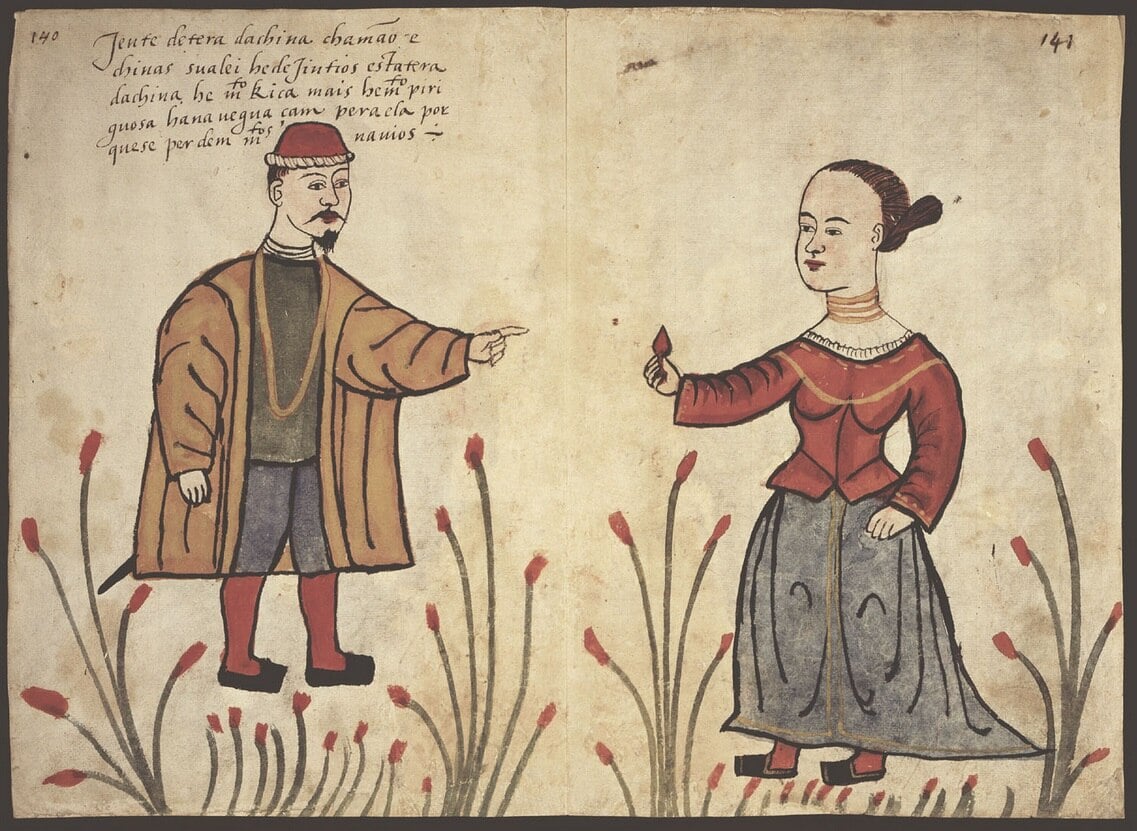 140
141
Jente detera dachina chamão e
chinas sualei he de Jintios estatera
dachina he mto Rica mais he mto piri
guosa hana uegua çam pera ela por
que se perdem mtos nauios